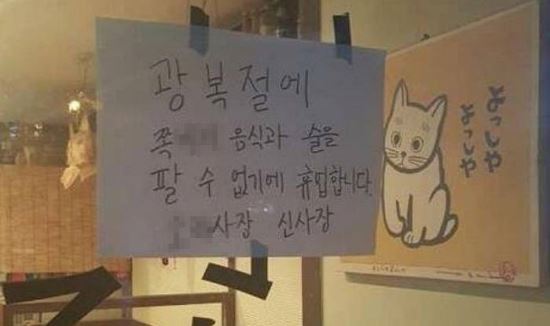 광복절에
쪽 음식과 술을
팔 수 없기에 휴업합니다.
사장 신사장
よっしゃ
よっしゃ